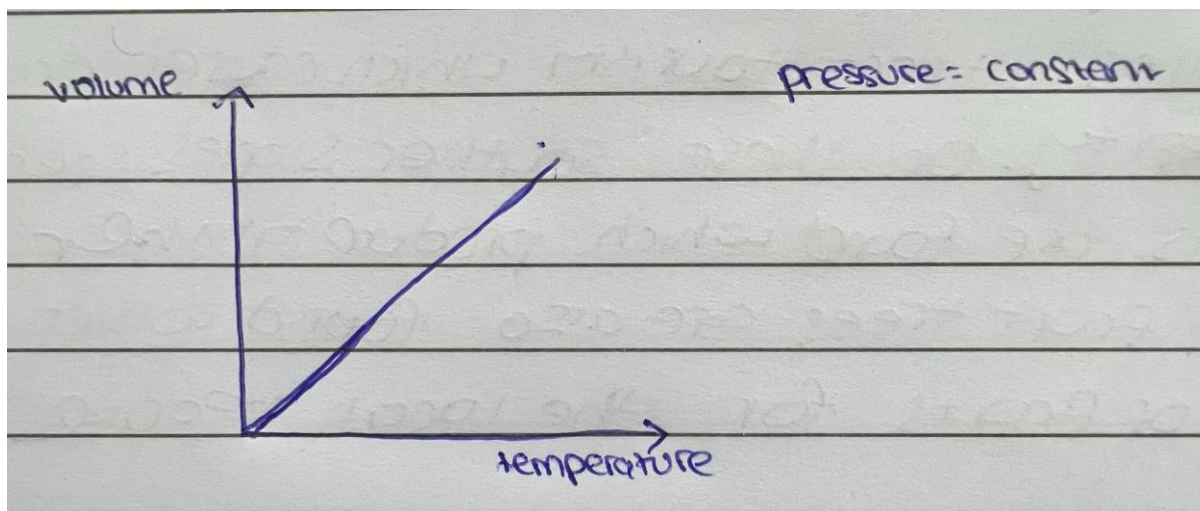 volume
pressure = constant
temperature